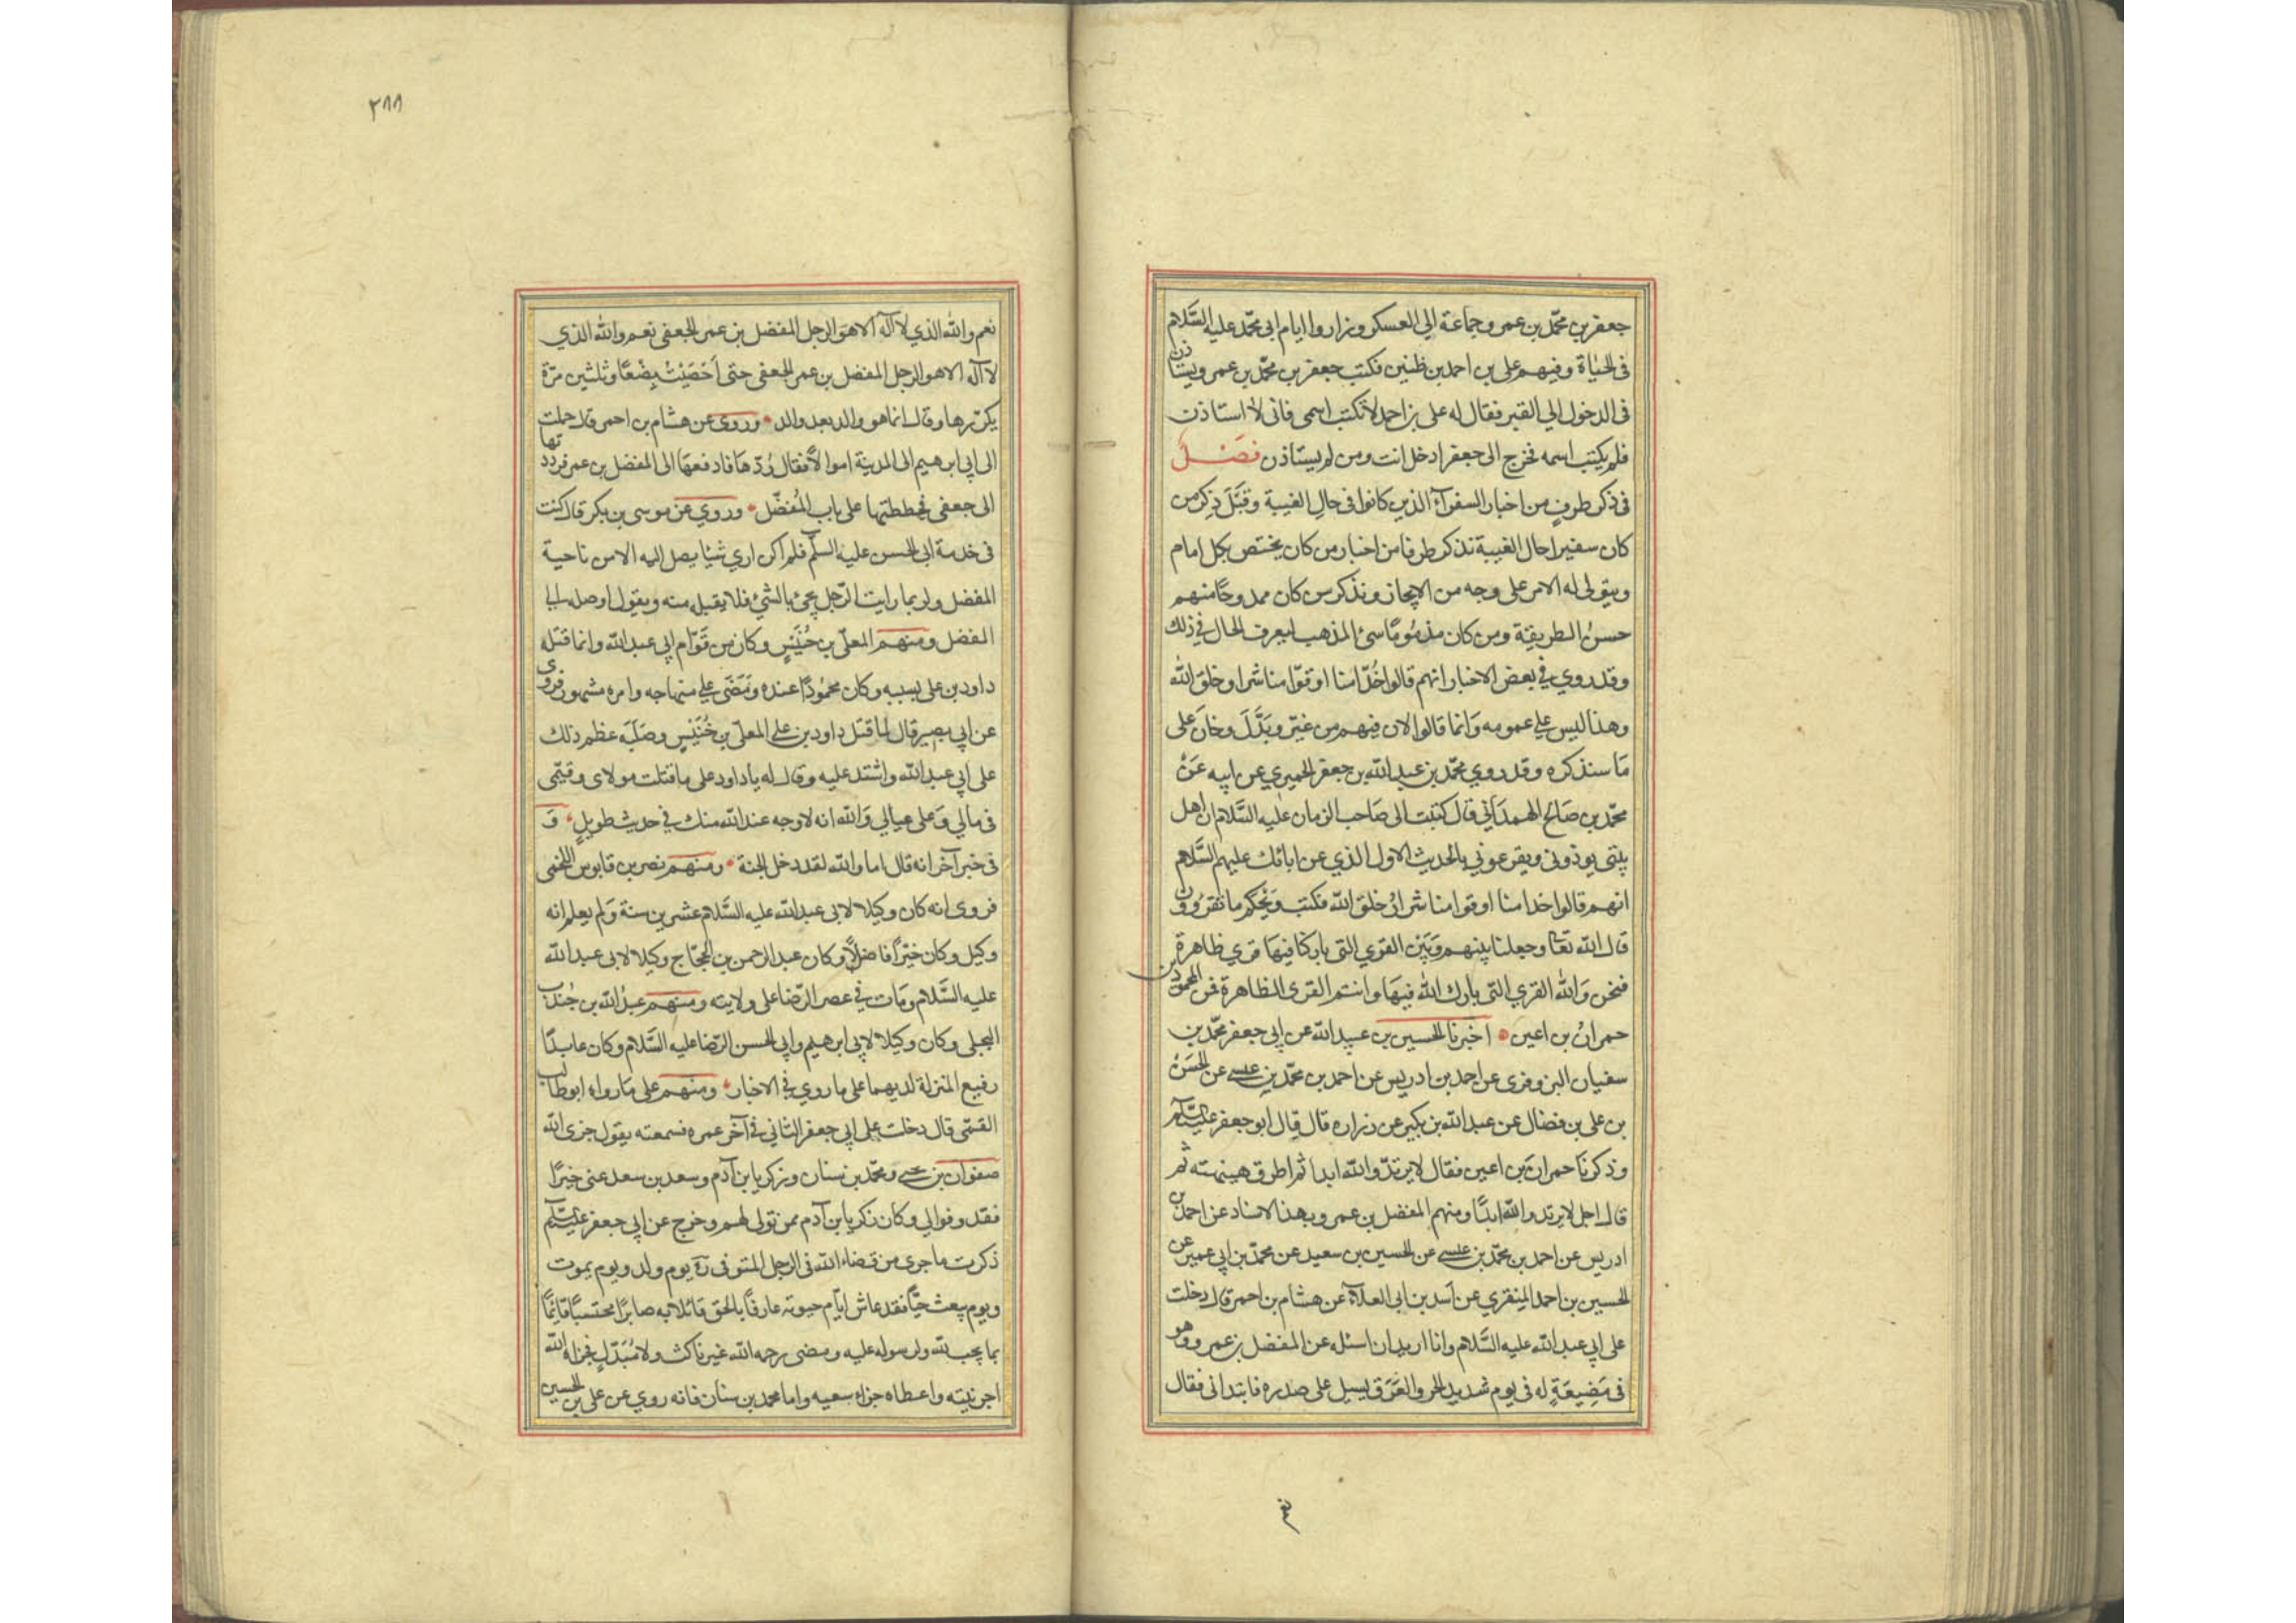 جعفر بن محمّد بن عمر وجماعة الي العسكر وزاروا ايام ابى محمّد عليه السَّلام
فى الحيٰاة وفيهم على بن احمد بن طنين فكتب جعفر بن محمّد بن عمر ويستاذن
فى الدخول الي القبر فقال له على بن احمد لا تكتب اسمى فانى لا استاذن
فلم يكتب اسمه فخرج الى جعفر ادخل انت ومن لم يستاذن فَصْل
فى ذكر طرفٍ من اخبار السفرآء الذين كانوا فى حالِ الغيبة وقَبَلَ ذِكر من
كان سفيرا حال الغيبة نذكر طرفا من اخبار من كان يختص بكل امام
ويتولى له الامر على وجه من الايجاز ونذكر من كان ممدوحًا منهم
حسنُ الطريقة ومن كان مذمُومًا سئ المذهب ليعرف الحال في ذلك
وقد روي في بعض الاخبار انهم قالوا خُدّامنا وقوّامنا شرار خلق اللّٰه
وهذا ليس علي عمومه وَانما قالوا لان فيهم من غيّر وبَدَّلَ وخانَ على
مَا سنذكره وقد روي محمّد بن عبد اللّٰه بن جعفر الحميري عن ابيه عَنْ
محمّد بن صَالح الهمدَاني قال كتبت الى صَاحب الزمان عليه السَّلام ان اهل
بيتى يوذونى ويقرعوني بالحديث الاول الذي عن ابائك عليهم السَّلام
انهم قالوا خدامنا وقوامنا شرار خلق اللّٰه فكتب وَيحكم ما تقرؤون
قال اللّٰه تعا وجعلنا بينهم وَبَيْن القري التى باركنا فيها قري ظاهرة
فنحن وَاللّٰه القري التى بارك اللّٰه فيهَا وانتم القرى الظاهرة فمن المحمودين
حمرانُ بن اعين اخبرنا الحسين بن عبيد اللّٰه عن ابي جعفر محمّد بن
سفيان البزوفرى عن احمد بن ادريس عن احمد بن محمّد بن عيسى عن الحَسَنْ
بن على بن فضال عن عبد اللّٰه بن بكير عن زراره قال قال ابو جعفر عليه السلم
وذكرنا حمرانَ بن اعين فقال لا يرتدّ واللّٰه ابدا ثم اطرق هنيهته ثم
قال اجل لا يرتد واللّٰه ابدًا ومنهم المفضل بن عمر وبهذا الاسناد عن احمد بن
ادريس عن احمد بن محمّد بن عيسى عن الحسين بن سعيد عن محمّد بن ابي عمير عن
الحسين بن احمد المِنقري عن اَسد بن ابى العلاء عن هشام بن احمر قال دخلت
على ابي عبد اللّٰه عليه السَّلام وانا اريد ان اسئله عن المفضل بن عمر وهو
فى ضيعَةٍ له فى يوم شديد الحر والعَرَق يسيل على صدره فابتدانى فقال
نعم
٢٨٨
نعم واللّٰه الذي لا آله الا هوَ الرجل المفضل بن عمر الجعفى نعم واللّٰه الذي
لا آله الا هو الرجل المفضل بن عمر الجعفى حتى اَحْصَيْتُ بِضْعًا وثلثين مرّة
يكرّرها وقال انما هو والد بعد والد وروى عن هشام بن احمر قال حملت
الى ابي ابرهيم الى المدينة اموالاً فقال رُدّهَا فادفعهَا الى المفضل بن عمر فرددتها
الى جعفى فحططتها على باب المُفضّل وروي عن موسى بن بكر قال كنت
فى خدمة ابى الحسن عليه السلّم فلم اكن اري شيئا يصل اليه الا من ناحية
المفضل ولربما رايت الرّجل يجئ بالشئ فلا يقبل منه ويقول اوصله الى
المفضل ومنهم المعلّى بن خُنَيْسٍ وكان من قَوّام ابي عبد اللّٰه وانما قتله
داود بن على بسببه وكان محمُودًا عنده ومَضَى علي منهاجه وامره مشهور فروى
عن ابي بصير قال لما قتل داود بن علي المعلّى بن خُنَيْسٍ وصَلَبَه عظم ذلك
على ابي عبد اللّٰه واشتد عليه وقال له يا داود على ما قتلت مولاى وقيّمى
فى مالي وَعلى عيالي وَاللّٰه انه لاوجه عند اللّٰه منك في حديث طويلٍ وَ
فى خبر آخر انه قال اما واللّٰه لقد دخل الجنة ومنهم نصر بن قابوس اللخمى
فروى انه كان وكيلا لابى عبد اللّٰه عليه السَّلام عشرين سنة وَلم يعلم انه
وكيل وكان خيّرًا فاضلاً وكان عبد الرحمن بن الحجّاج وكيلا لابى عبد اللّٰه
عليه السَّلام وَمات في عصر الرّضا على ولايته ومنهم عبدُ اللّٰه بن جُندب
البجلى وكان وكيلا لابي ابرهيم وابي الحسن الرّضا عليه السَّلام وكان عابدًا
رفيع المنزلة لديهما على ما روي في الاخبار ومنهم على مَا رواه ابو طالب
القمّى قال دخلت على ابي جعفر الثاني فى آخر عمره فسمعته يقول جزى اللّٰه
صفوان بن يحيى ومحمّد بن سنان وزكريا بن آدم وسعد بن سعد عنى خيرًا
فقد وفوا لي وكان زكريا بن آدم ممن تولى لهم وخرج عن ابي جعفر عليه السلم
ذكرت ما جرى من قضاء اللّٰه فى الرجل المتوفى ره يوم ولد ويوم يموت
ويوم يبعث حيًّا فقد عاش ايّام حيوته عارفًا بالحق قائلا به صابرًا محتسبًا قائمًا
بما يحب للّٰه ولرسوله عليه ومضى رحمه اللّٰه غير ناكث ولا مُبَدّلٍ فجزاه اللّٰه
اجر نيته واعطاه جزاء سعيه واما محمد بن سنان فانه روي عن على بن الحسين